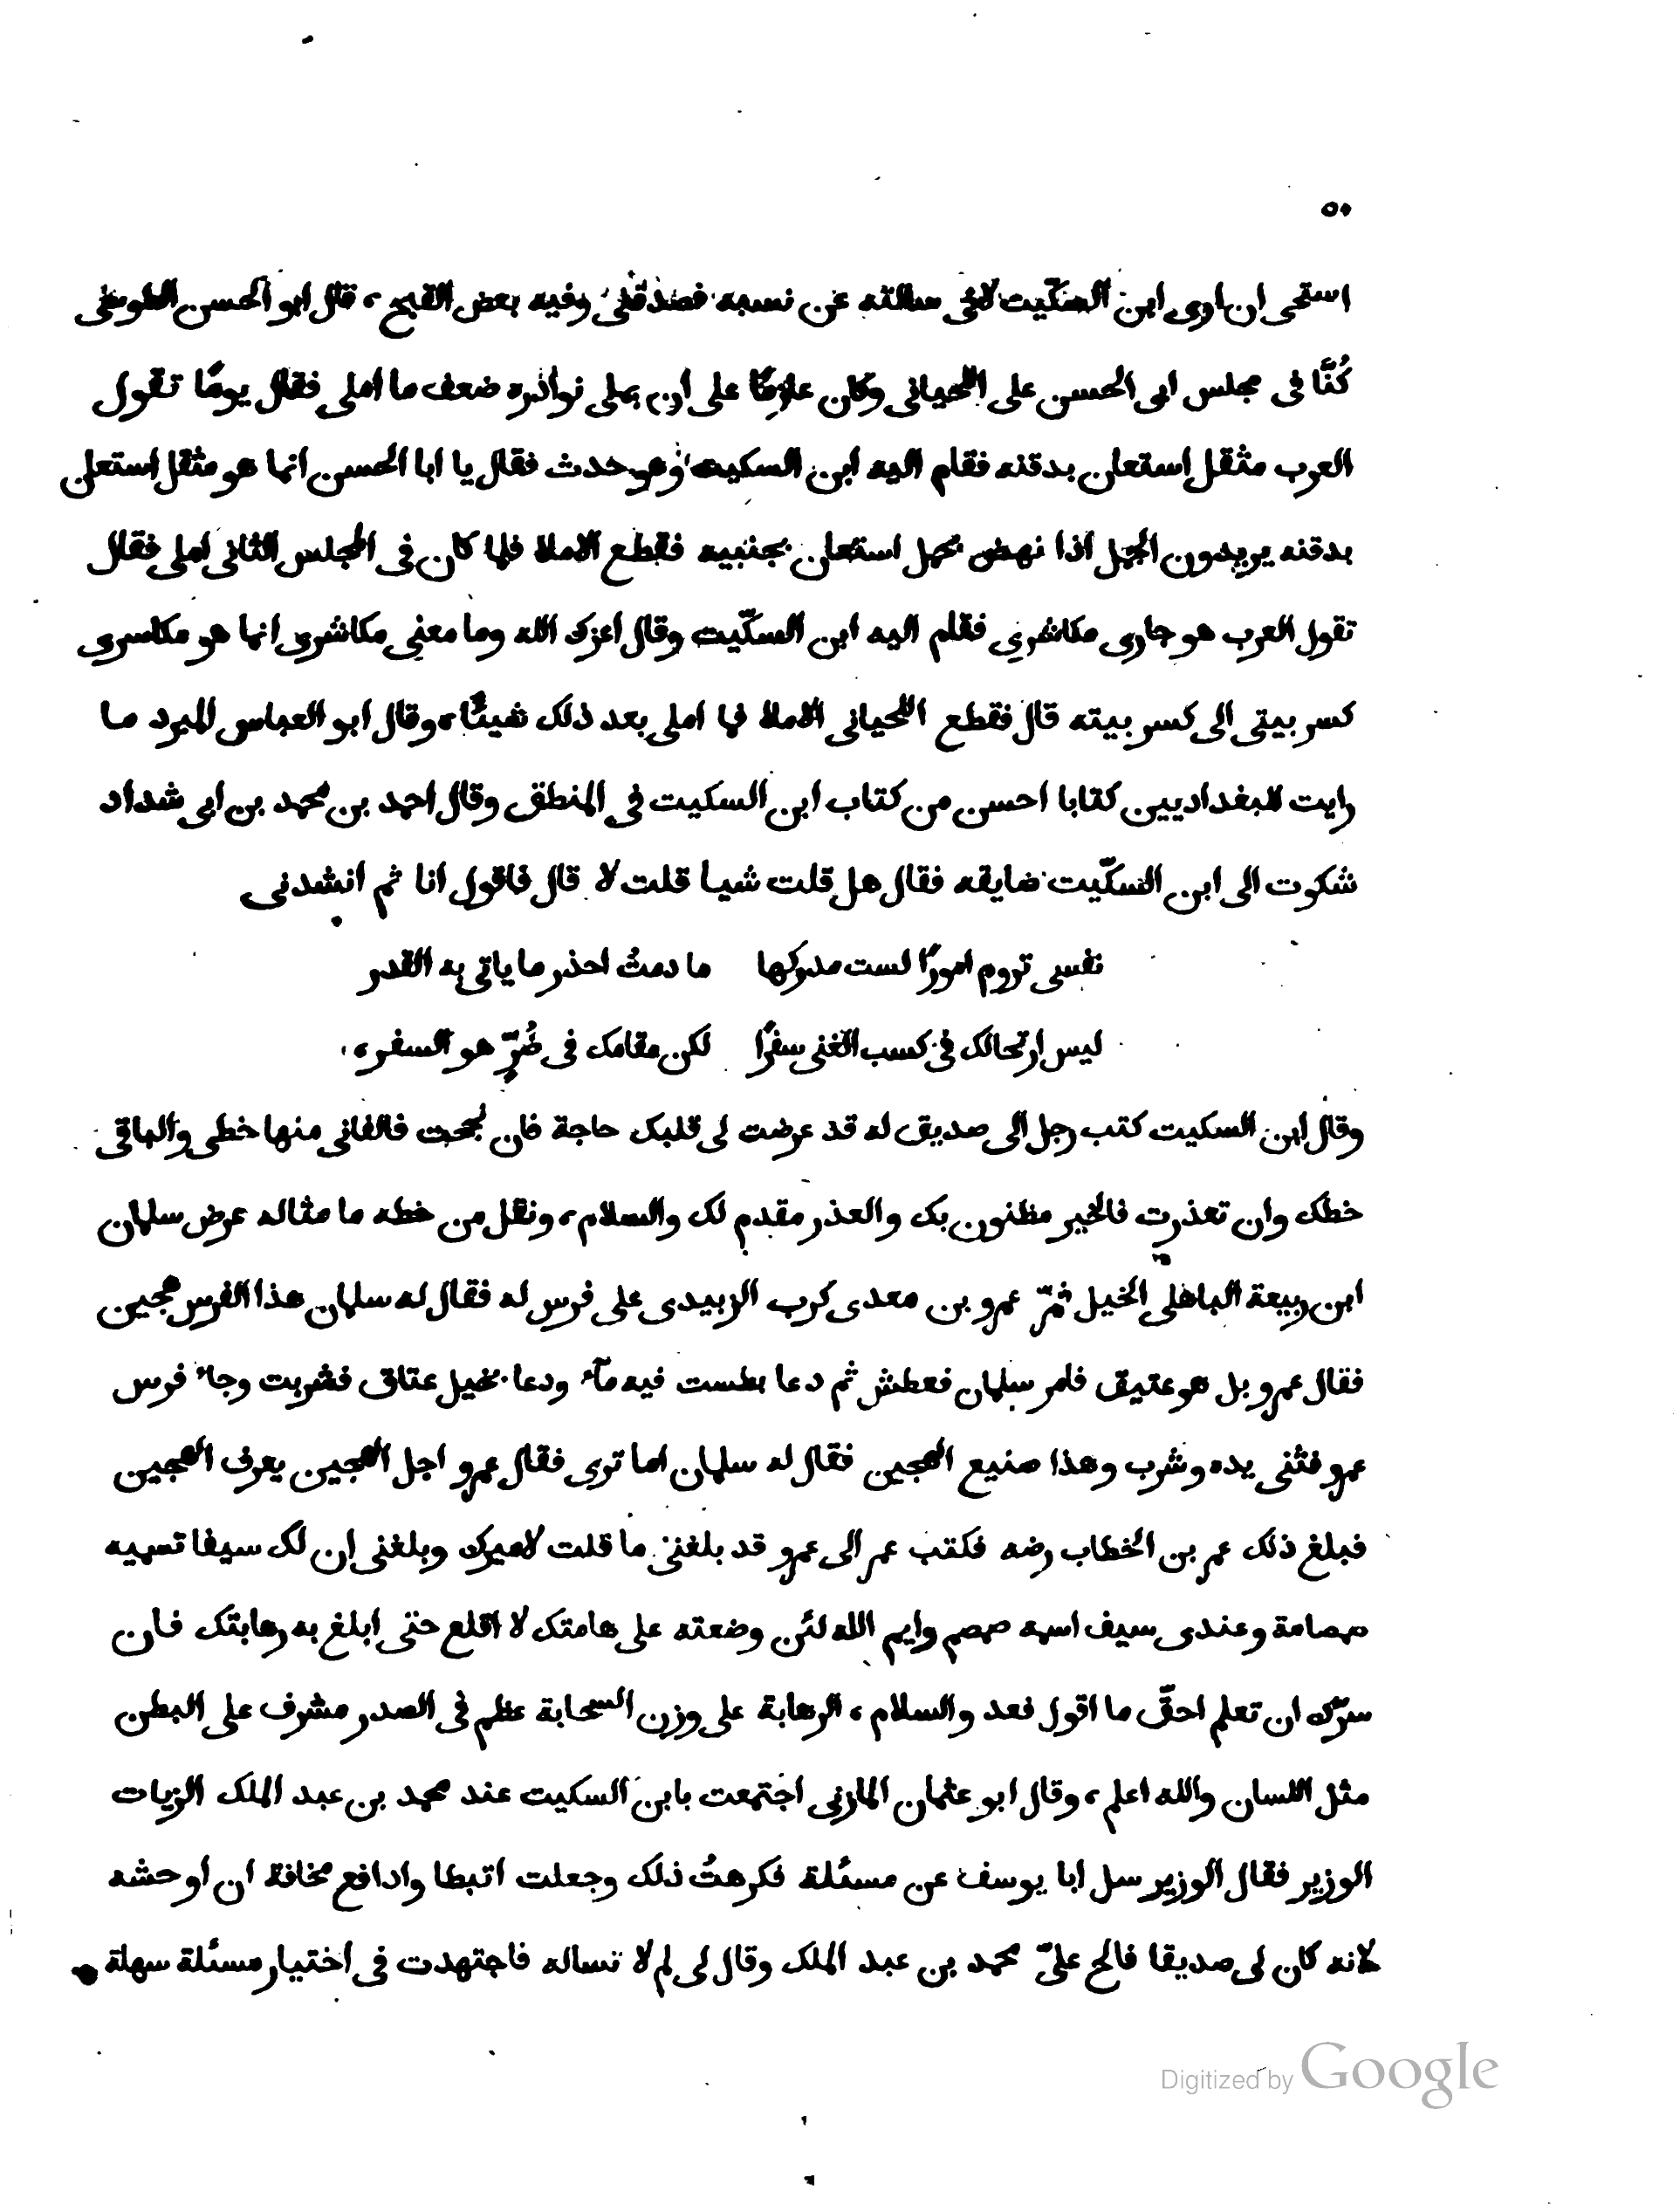 ٥٠
استحى ان ارى ابن السكّيت لانى سالته عن نسبه فصدقنى وفيه بعض القبح، قال ابو الحسن الطوسى
كُنَّا فى مجلس ابى الحسن على اللحيانى وكان عازمًا على ان يملى نوادره ضعف ما املى فقال يومًا تقول
العرب مثقل استعان بدقنه فقام اليه ابن السكيت وهو حدث فقال يا ابا الحسن انما هو مثقل استعان
بدقنه يريدون الجمل اذا نهض بحمل استعان بجنبيه فقطع الاملا فلما كان فى المجلس الثانى املى فقال
تقول العرب هو جارى مكاشرى فقام اليه ابن السكّيت وقال اعزك الله وما معنى مكاشرى انما هو مكاسرى
كسر بيتى الى كسر بيته قال فقطع اللحيانى الاملا فما املى بعد ذلك شيئًا، وقال ابو العباس المبرد ما
رايت للبغداديين كتابا احسن من كتاب ابن السكيت فى المنطق وقال احمد بن محمد بن ابى شداد
شكوت الى ابن السكّيت ضايقه فقال هل قلت شيا قلت لا قال فاقول انا ثم انشدنى
نفسى تروم امورًا لست مدركها ما دمتُ احذر ما ياتى به القدر
ليس ارتحالك فى كسب الغنى سفرًا لكن مقامك فى ضُرٍّ هو السفر،
وقال ابن السكيت كتب رجل الى صديق له قد عرضت لى قلبك حاجة فان نجحت فالفانى منها خطى والباقى
خطك وان تعذرت فالخير مظنون بك والعذر مقدم لك والسلام، ونقل من خطه ما مثاله عرض سلمان
ابن ربيعة الباهلى الخيل ثمّر عمرو بن معدى كرب الزبيدى على فرس له فقال له سلمان هذا الفرس هجين
فقال عمرو بل هو عتيق فامر سلمان فعطش ثم دعا بطست فيه مآء ودعا بخيل عتاق فشربت وجاء فرس
عمرو فثنى يده وشرب وهذا صنيع الهجين فقال له سلمان اما ترى فقال عمرو اجل الهجين يعرف الهجين
فبلغ ذلك عمر بن الخطاب رضه فكتب عمر الى عمرو قد بلغنى ما قلت لاميرك وبلغنى ان لك سيفا تسميه
صمصامة وعندى سيف اسمه صمصم وايم الله لئن وضعته على هامتك لا اقلع حتى ابلغ به رهابتك فان
سرّك ان تعلم احقّ ما اقول فعد والسلام، الرهابة على وزن السحابة عظم فى الصدر مشرف على البطن
مثل اللسان والله اعلم، وقال ابو عثمان المازنى اجتمعت بابن السكيت عند محمد بن عبد الملك الزيات
الوزير فقال الوزير سل ابا يوسف عن مسئلة فكرهتُ ذلك وجعلت اتبطا وادافع مخافة ان اوحشه
لانه كان لى صديقا فالح علىّ محمد بن عبد الملك وقال لى لم لا تساله فاجتهدت فى اختيار مسئلة سهلة
Digitized by Google